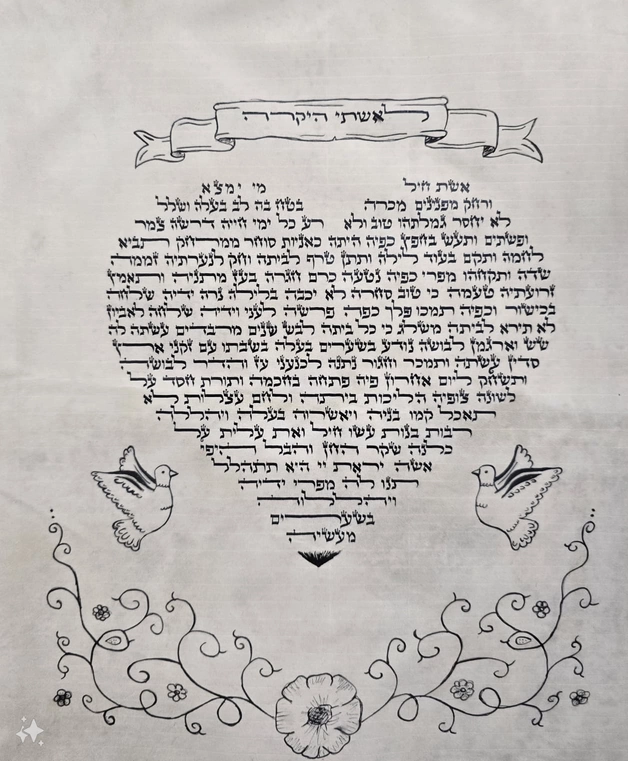 לאשתי היקרה
אשת חיל מי ימצא
ורחק מפנינים מכרה בטח בה לב בעלה ושלל
לא יחסר גמלתהו טוב ולא רע כל ימי חייה דרשה צמר
ופשתים ותעש בחפץ כפיה היתה כאניות סוחר ממרחק תביא
לחמה ותקם בעוד לילה ותתן טרף לביתה וחק לנערתיה זממה
שדה ותקחהו מפרי כפיה נטעה כרם חגרה בעז מתניה ותאמץ
זרועתיה טעמה כי טוב סחרה לא יכבה בלילה נרה ידיה שלחה
בכישור וכפיה תמכו פלך כפה פרשה לעני וידיה שלחה לאביון
לא תירא לביתה משלג כי כל ביתה לבש שנים מרבדים עשתה לה
שש וארגמן לבושה נודע בשערים בעלה בשבתו עם זקני ארץ
סדין עשתה ותמכר וחגור נתנה לכנעני עז והדר לבושה
ותשחק ליום אחרון פיה פתחה בחכמה ותורת חסד על
לשונה צופיה הליכות ביתה ולחם עצלות לא
תאכל קמו בניה ויאשרוה בעלה ויהללה
רבות בנות עשו חיל ואת עלית על
כלנה שקר החן והבל היפי
אשה יראת יי היא תתהלל
תנו לה מפרי ידיה
ויהללוה
בשערים
מעשיה